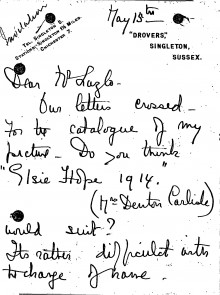 Invitation
TEL. SINGLETON
STATION, SINGLETON
CHICHESTER 7.
May 18th
"DROVERS,"
SINGLETON,
SUSSEX.
Dear Mr
Our letters crossed -
For the catalogue of my
picture - Do you think
"Elsie Hope 1914."
(Mrs Denton Carlisle)
would suit?
Its rather difficult with
the change of name.